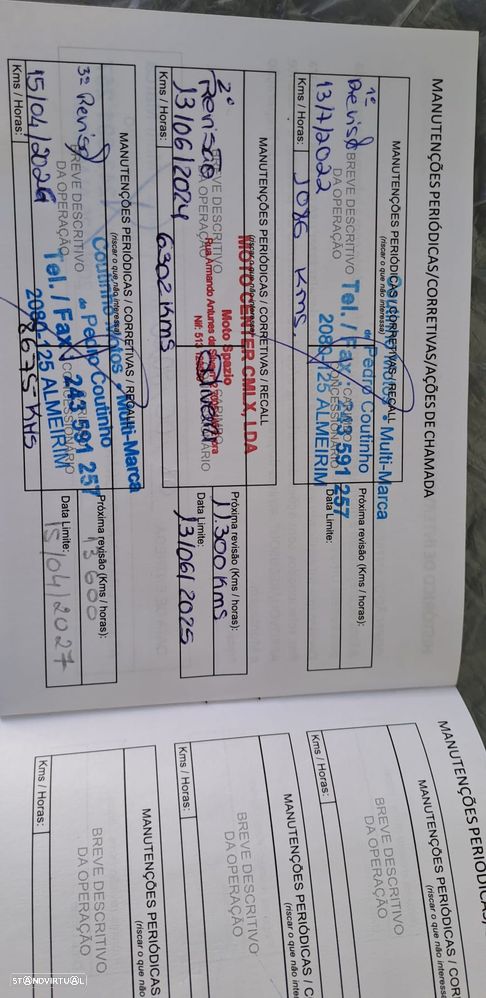 MANUTENÇÕES PERIÓDICAS/CORRETIVAS/AÇÕES DE CHAMADA
MANUTENÇÕES PERIÓDICAS / CORRETIVAS / RECALL
(riscar o que não interessa)
BREVE DESCRITIVO
DA OPERAÇÃO
1ª
13/7/2022
Kms / Horas:
1086 Kms.
Multi-Marca
de Pedro Coutinho
Tel. / Fax. 243 591 257
2080-125 ALMEIRIM
Próxima revisão (Kms / horas):
Data Limite:
MANUTENÇÕES PERIÓDICAS / CORRETIVAS / RECALL
BREVE DESCRITIVO
DA OPERAÇÃO
2ª
Revisão
13/06/2024
Kms / Horas:
6302 Kms
MOTO CENTER CMLX, LDA
Moto Spazio
Rua Armando Antunes
Nif: 513
Próxima revisão (Kms / horas):
11.300 Kms
Data Limite:
13/06/2025
MANUTENÇÕES PERIÓDICAS / CORRETIVAS / RECALL
(riscar o que não interessa)
BREVE DESCRITIVO
DA OPERAÇÃO
3ª
15/04/2026
Kms / Horas:
8675-KMS
Coutinho Motos - Multi-Marca
de Pedro Coutinho
Tel. / Fax. 243 591 257
2080-125 ALMEIRIM
Próxima revisão (Kms / horas):
13 600
Data Limite:
15/04/2027
MANUTENÇÕES PERIÓDICAS/
MANUTENÇÕES PERIÓDICAS / COR
(riscar o que não interessa
BREVE DESCRITIVO
DA OPERAÇÃO
Kms / Horas:
MANUTENÇÕES PERIÓDICAS / C
(riscar o que não inter
BREVE DESCRITIVO
DA OPERAÇÃO
Kms / Horas:
MANUTENÇÕES PERIÓDICAS
(riscar o que não
BREVE DESCRITIVO
DA OPERAÇÃO
Kms / Horas:
STANDVIRTUAL